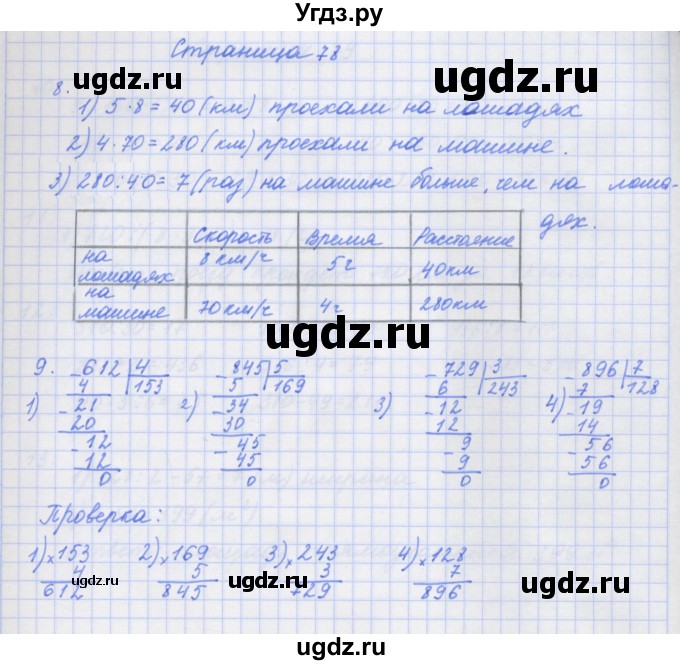 Угдз.ру
Страница 78
ugdz.ru ugdz.ru
8.
1) 5·8=40 (км) проехали на лошадях
2) 4·70=280 (км) проехали на машине.
3) 280:40=7 (раз) на машине больше, чем на лоша-
дях.
Скорость Время Расстояние
на лошадях 8 км/ч 5ч 40км
на машине 70км/ч 4ч 280км
ugdz.ru
9.
1) -612 4
4 153
-21
20
-12
12
0
2) -845 5
5 169
-34
30
-45
45
0
3) -729 3
6 243
-12
12
-9
9
0
4) -896 7
7 128
-19
14
-56
56
0
ugdz.ru ugdz.ru
Проверка:
1) ×153
4
612
2) ×169
5
845
3) ×243
3
729
4) ×128
7
896
ugdz.ru ugdz.ru
ugdz.ru
ugdz.ru